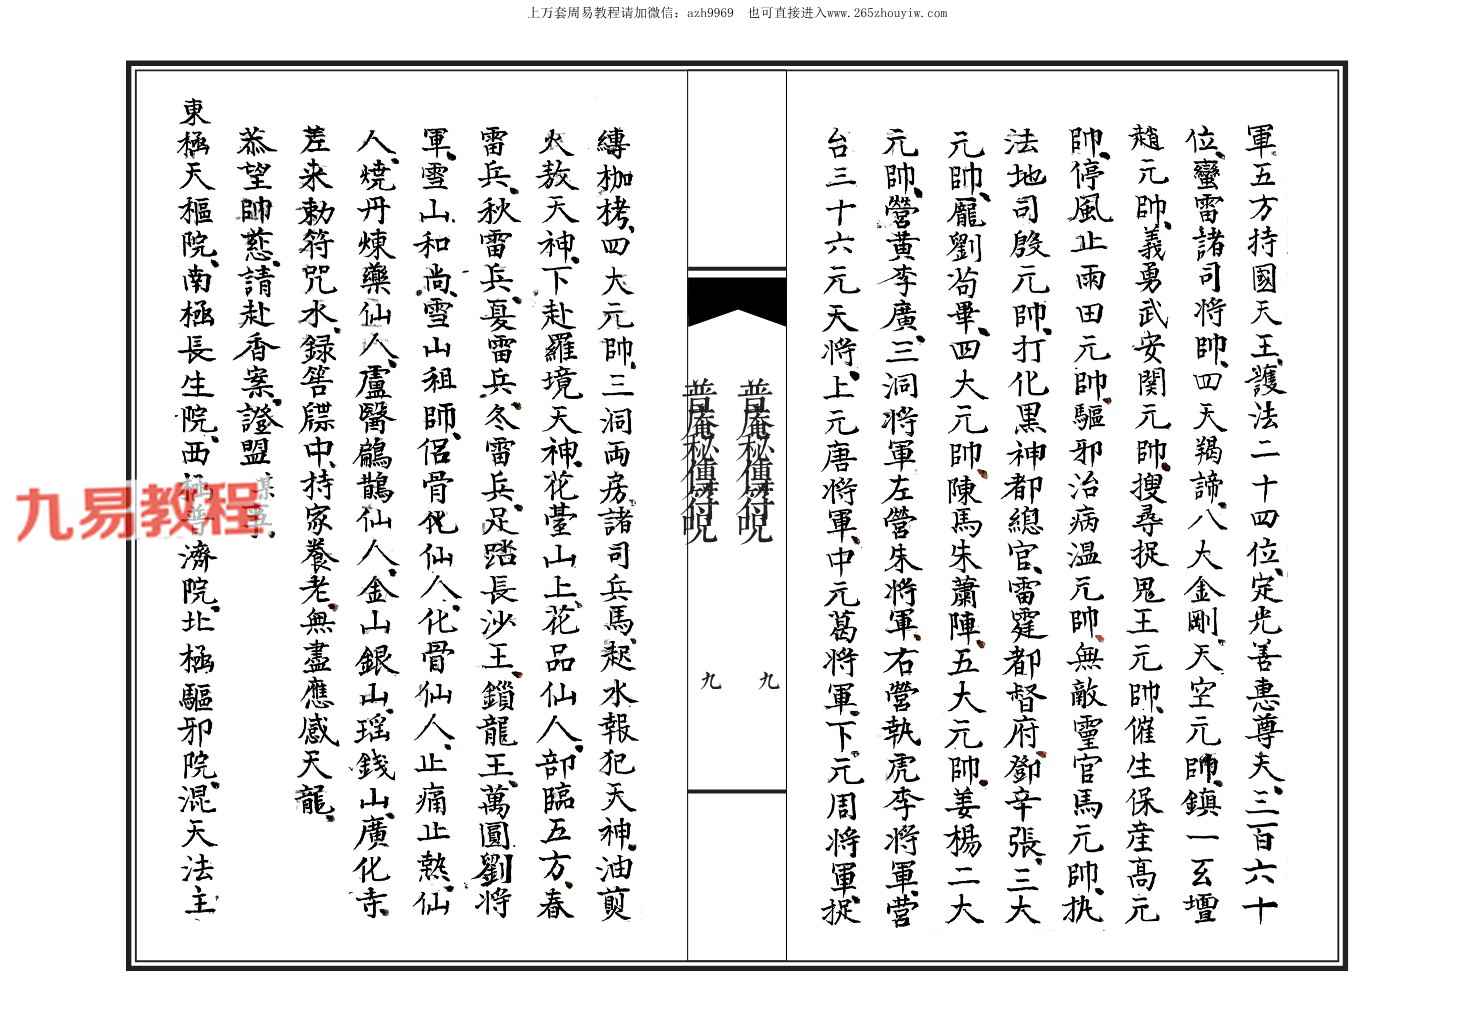 上万套周易教程请加微信：azh9969　也可直接进入www.265zhouyiw.com
軍五方持國天王、護法二十四位、定光善惠尊夫、三百六十
位、蠻雷諸司将帥、四天羯諦、八大金剛、天空元帥、鎮一玄壇
趙元帥、義勇武安関元帥、搜尋捉鬼王元帥、催生保産高元
帥、停風止雨田元帥、驅邪治病温元帥、無敵靈官馬元帥、执
法地司殷元帥、打化黒神都總官、雷霆都督府、鄧辛張、三大
元帥、龐劉苟畢、四大元帥、陳馬朱蕭陣、五大元帥、姜楊二大
元帥、營黄李廣、三洞将軍左營朱将軍、右營执虎李将軍、营
台三十六元天将、上元唐将軍、中元葛将軍、下元周将軍、捉
縳枷栲、四大元帥、三洞両房諸司兵馬、起水報犯天神、油煎
火敖天神、下赴羅境天神、花臺山上、花品仙人、部臨五方、春
雷兵、秋雷兵、夏雷兵、冬雷兵、足踏長沙王、鎖龍王、萬圓劉将
軍、雪山和尚、雪山祖師、侣骨化仙人、化骨仙人、止痛止熱、仙
人、燒丹煉藥仙人、盧醫鶣鵲仙人、金山銀山、瑶錢山、廣化寺、
差来勅符咒水、録筶牒中、持家養老、無盡應感天龍、
恭望帥慈、請赴香案、證盟
東極天樞院、南極長生院、西極普濟院、北極驅邪院、混天法主、
普庵秘傳符呪
九
普庵秘傳符呪
九
九易教程